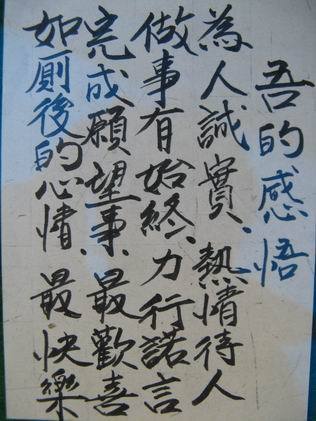 吾的感悟
為人誠實、熱情待人
做事有始終、力行諾言
完成願望事、最歡喜
如廁後的心情、最快樂